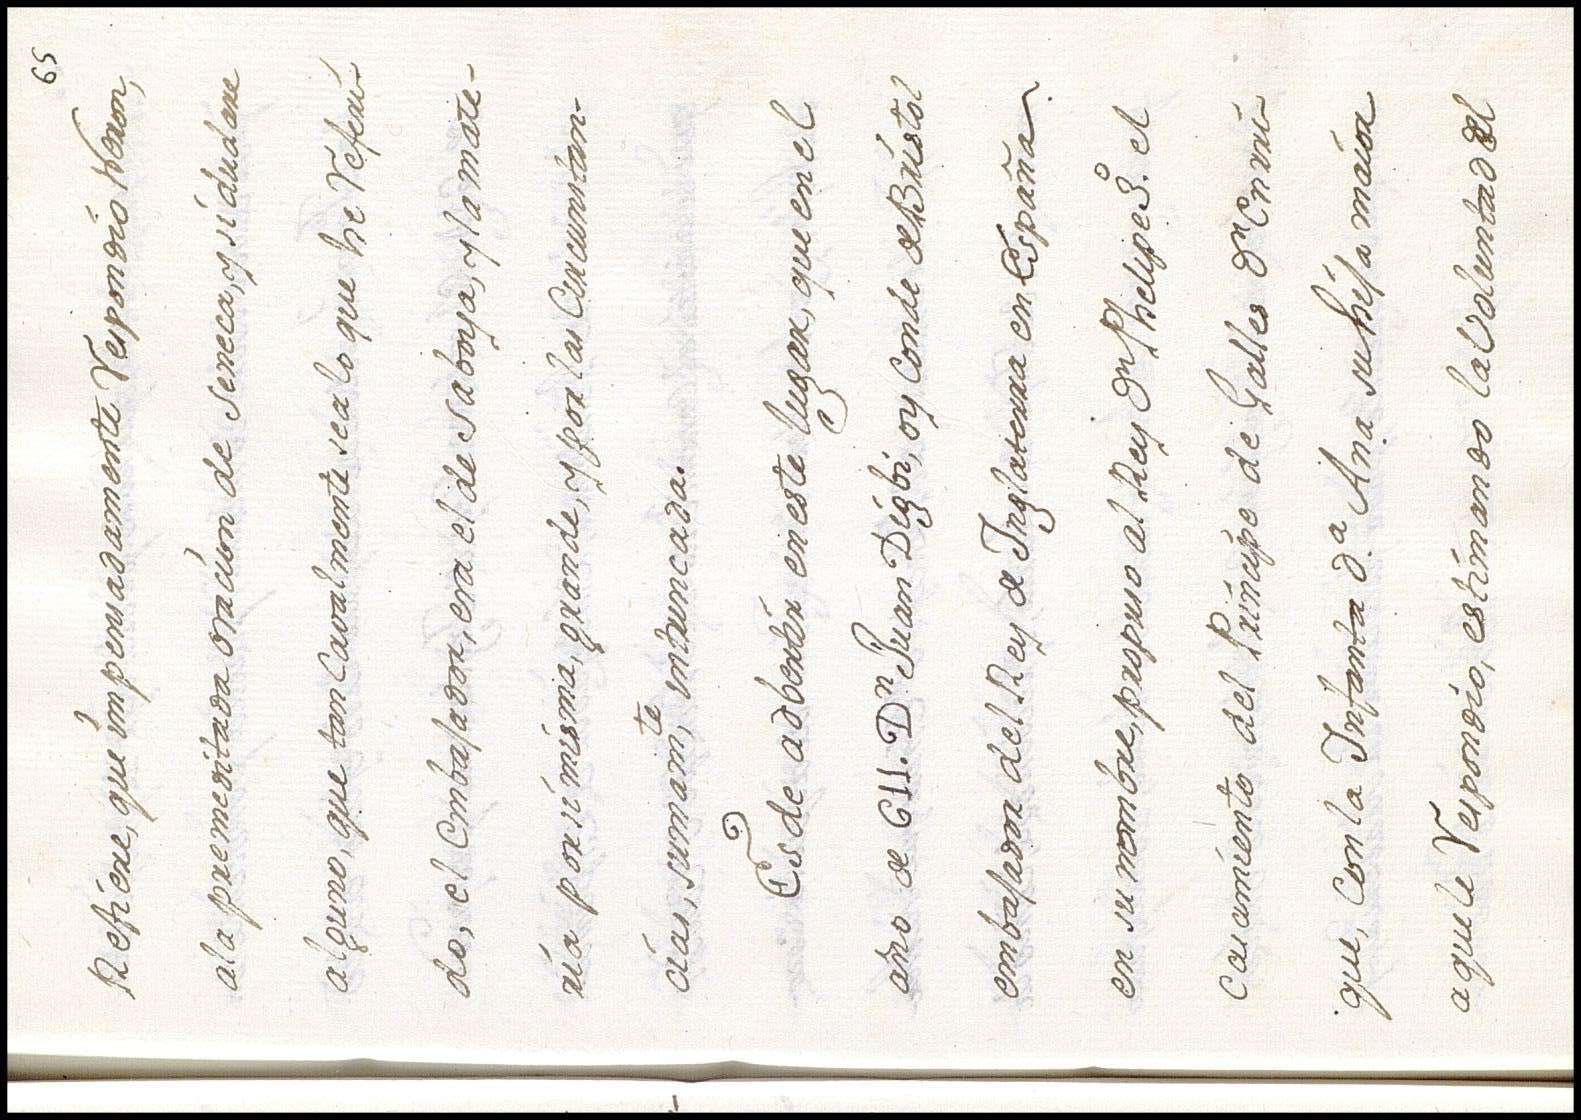 65
Refiere, que impensadamente Respondio Neron,
ala premeditada oracion de Seneca, y si dudare
alguno, que tan Caualmente sea lo que he Referi-
do, el Embaſador, era el de Saboya, y la mate-
ria por si misma, grande, y por las Circunstan-
cias, summam,te intrincada.
Es de adbertir en este lugar, que en el
año de 611. Dn. Juan Digbi, oy Conde de Bristol
embaſador del Rey de Inglaterra en España
en su nombre, propuso al Rey Dn Phelipe 3.o el
casamiento del Principe de Galles Dn Enrri-
que, con la Infanta D.a Ana su hija maior
a que le Respondio, estimando la Voluntad del